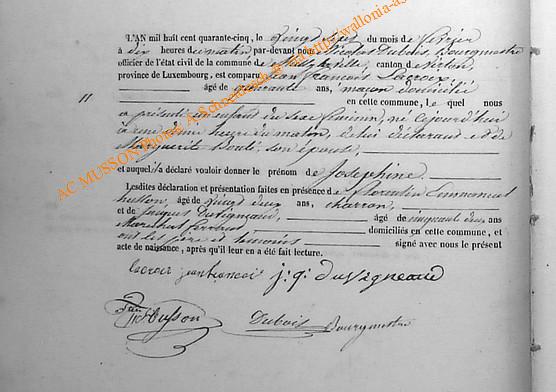 L'AN mil huit cent quarante-cinq, le vingt six du mois de février
à dix heures du matin par-devant nous Nicolas Dubois, Bourgmestre
officier de l'état civil de la commune de canton de Virton,
province de Luxembourg, est comparu Jean François Lacroix
âgé de quarante ans, maçon domicilié
11
en cette commune, le quel nous
a présenté un enfant du sexe féminin, né aujourd'hui
à une heure du matin, de lui déclarant et de
Marguerite son épouse,
et auquel il a déclaré vouloir donner le prénom de Joséphine.
Lesdites déclaration et présentation faites en présence de Florentin Emmanuel
husson, âgé de ans, charron,
et de Jacques Duvigneaud, âgé de cinquante deux ans
Maréchal ferrant domiciliés en cette commune, et
ont les père et témoins signé avec nous le présent
acte de naissance, après qu'il leur en a été fait lecture.
Lacroix jean francois j. j. duvigneaud
husson Dubois Bourgmestre
AC MUSSON Photos A. Schneidesch http://wallonia-as